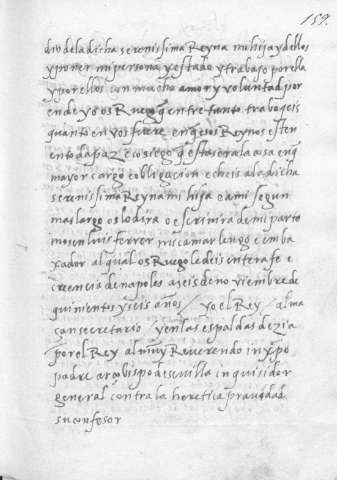 159.
dio de la dicha serenissima Reyna mi hija y dellos
y poner mi persona y estado y trabajo por ella
y por ellos con mucho amor y voluntad por
ende yo os Ruego q entre tanto trabajeis
quanto en vos fuere en q esos Reynos esten
en toda paz e sosiego q esta sera la cosa en q
mayor cargo e obligacion echeis a la dicha
serenissima Reyna mi hija e a mi segun
mas largo os lo dira o escrivira de mi parte
mosen luis ferrer mi camarlengo e emba
xador al qual os Ruego le deis entera fe e
creencia de napoles a seis de noviembre de
quinientos y seis años / yo el Rey / alma
can secretario / y en las espaldas dezia
por el Rey al muy Reverendo in xpo
padre arçobispo de sevilla inquisidor
general contra la heretica pravedad
su confesor